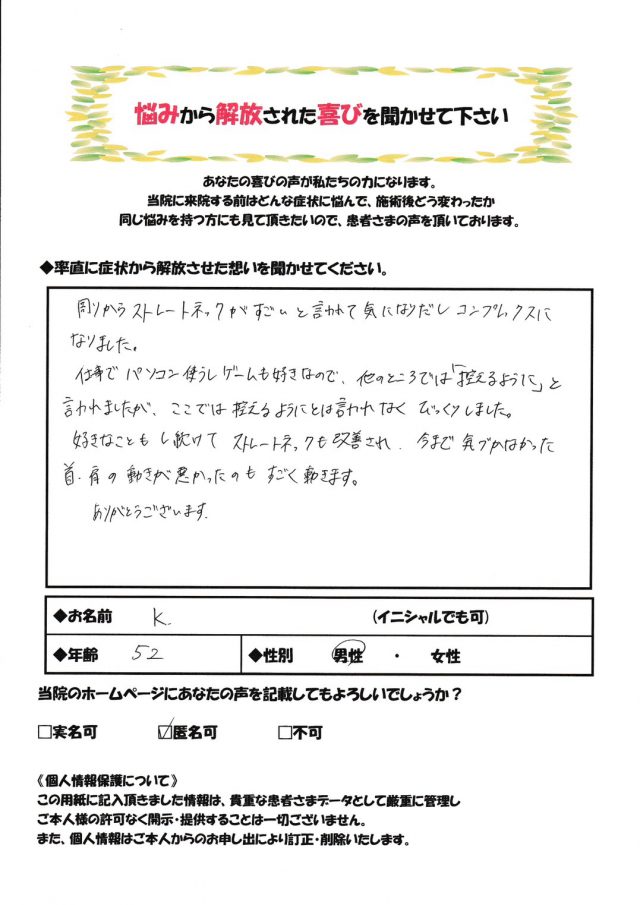 悩みから解放された喜びを聞かせて下さい
あなたの喜びの声が私たちの力になります。
当院に来院する前はどんな症状に悩んで、施術後どう変わったか
同じ悩みを持つ方にも見て頂きたいので、患者さまの声を頂いております。
◆率直に症状から解放させた想いを聞かせてください。
周りからストレートネックがすごいと言われて気になりだしコンプレックスに
なりました。
仕事でパソコン使うしゲームも好きなので、他のところでは「控えるように」と
言われましたが、ここでは控えるようにとは言われなくびっくりしました。
好きなこともし続けてストレートネックも改善され、今まで気づかなかった
首・肩の動きが悪かったのもすごく動きます。
ありがとうございます。
◆お名前 K. (イニシャルでも可)
◆年齢 52 ◆性別 男性 ・ 女性
当院のホームページにあなたの声を記載してもよろしいでしょうか？
□実名可 ☑匿名可 □不可
《個人情報保護について》
この用紙に記入頂きました情報は、貴重な患者さまデータとして厳重に管理し
ご本人様の許可なく開示・提供することは一切ございません。
また、個人情報はご本人からのお申し出により訂正・削除いたします。